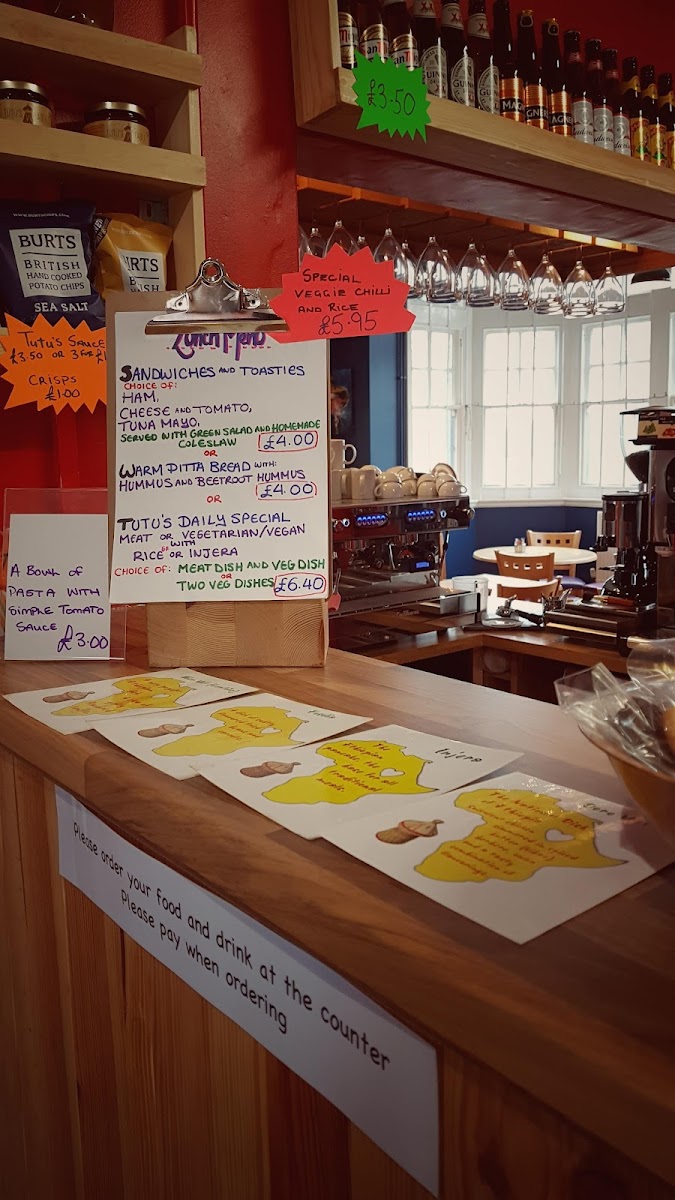 £3.50
GUIN
MAG
GNER
www.BURTSCHIPS.com
BURTS
BRITISH
HAND COOKED
POTATO CHIPS
SEA SALT
URTS
TUTU'S SAUCE
£3.50 OR 3 FOR £1
CRISPS
£1.00
SPECIAL
VEGGIE CHILLI
AND RICE
£5.95
LUNCH MENU
SANDWICHES AND TOASTIES
CHOICE OF:
HAM,
CHEESE AND TOMATO,
TUNA MAYO,
SERVED WITH GREEN SALAD AND HOMEMADE
COLESLAW £4.00
OR
WARM PITTA BREAD WITH:
HUMMUS AND BEETROOT HUMMUS
£4.00
OR
TUTU'S DAILY SPECIAL
MEAT OR VEGETARIAN/VEGAN
WITH
RICE OR INJERA
CHOICE OF: MEAT DISH AND VEG DISH
OR
TWO VEG DISHES £6.40
A BOWL OF
PASTA WITH
SIMPLE TOMATO
SAUCE
£3.00
Injera
The
Ethiopian
pancake, the
base for all
traditional
meals.
Please order your food and drink at the counter
Please pay when ordering